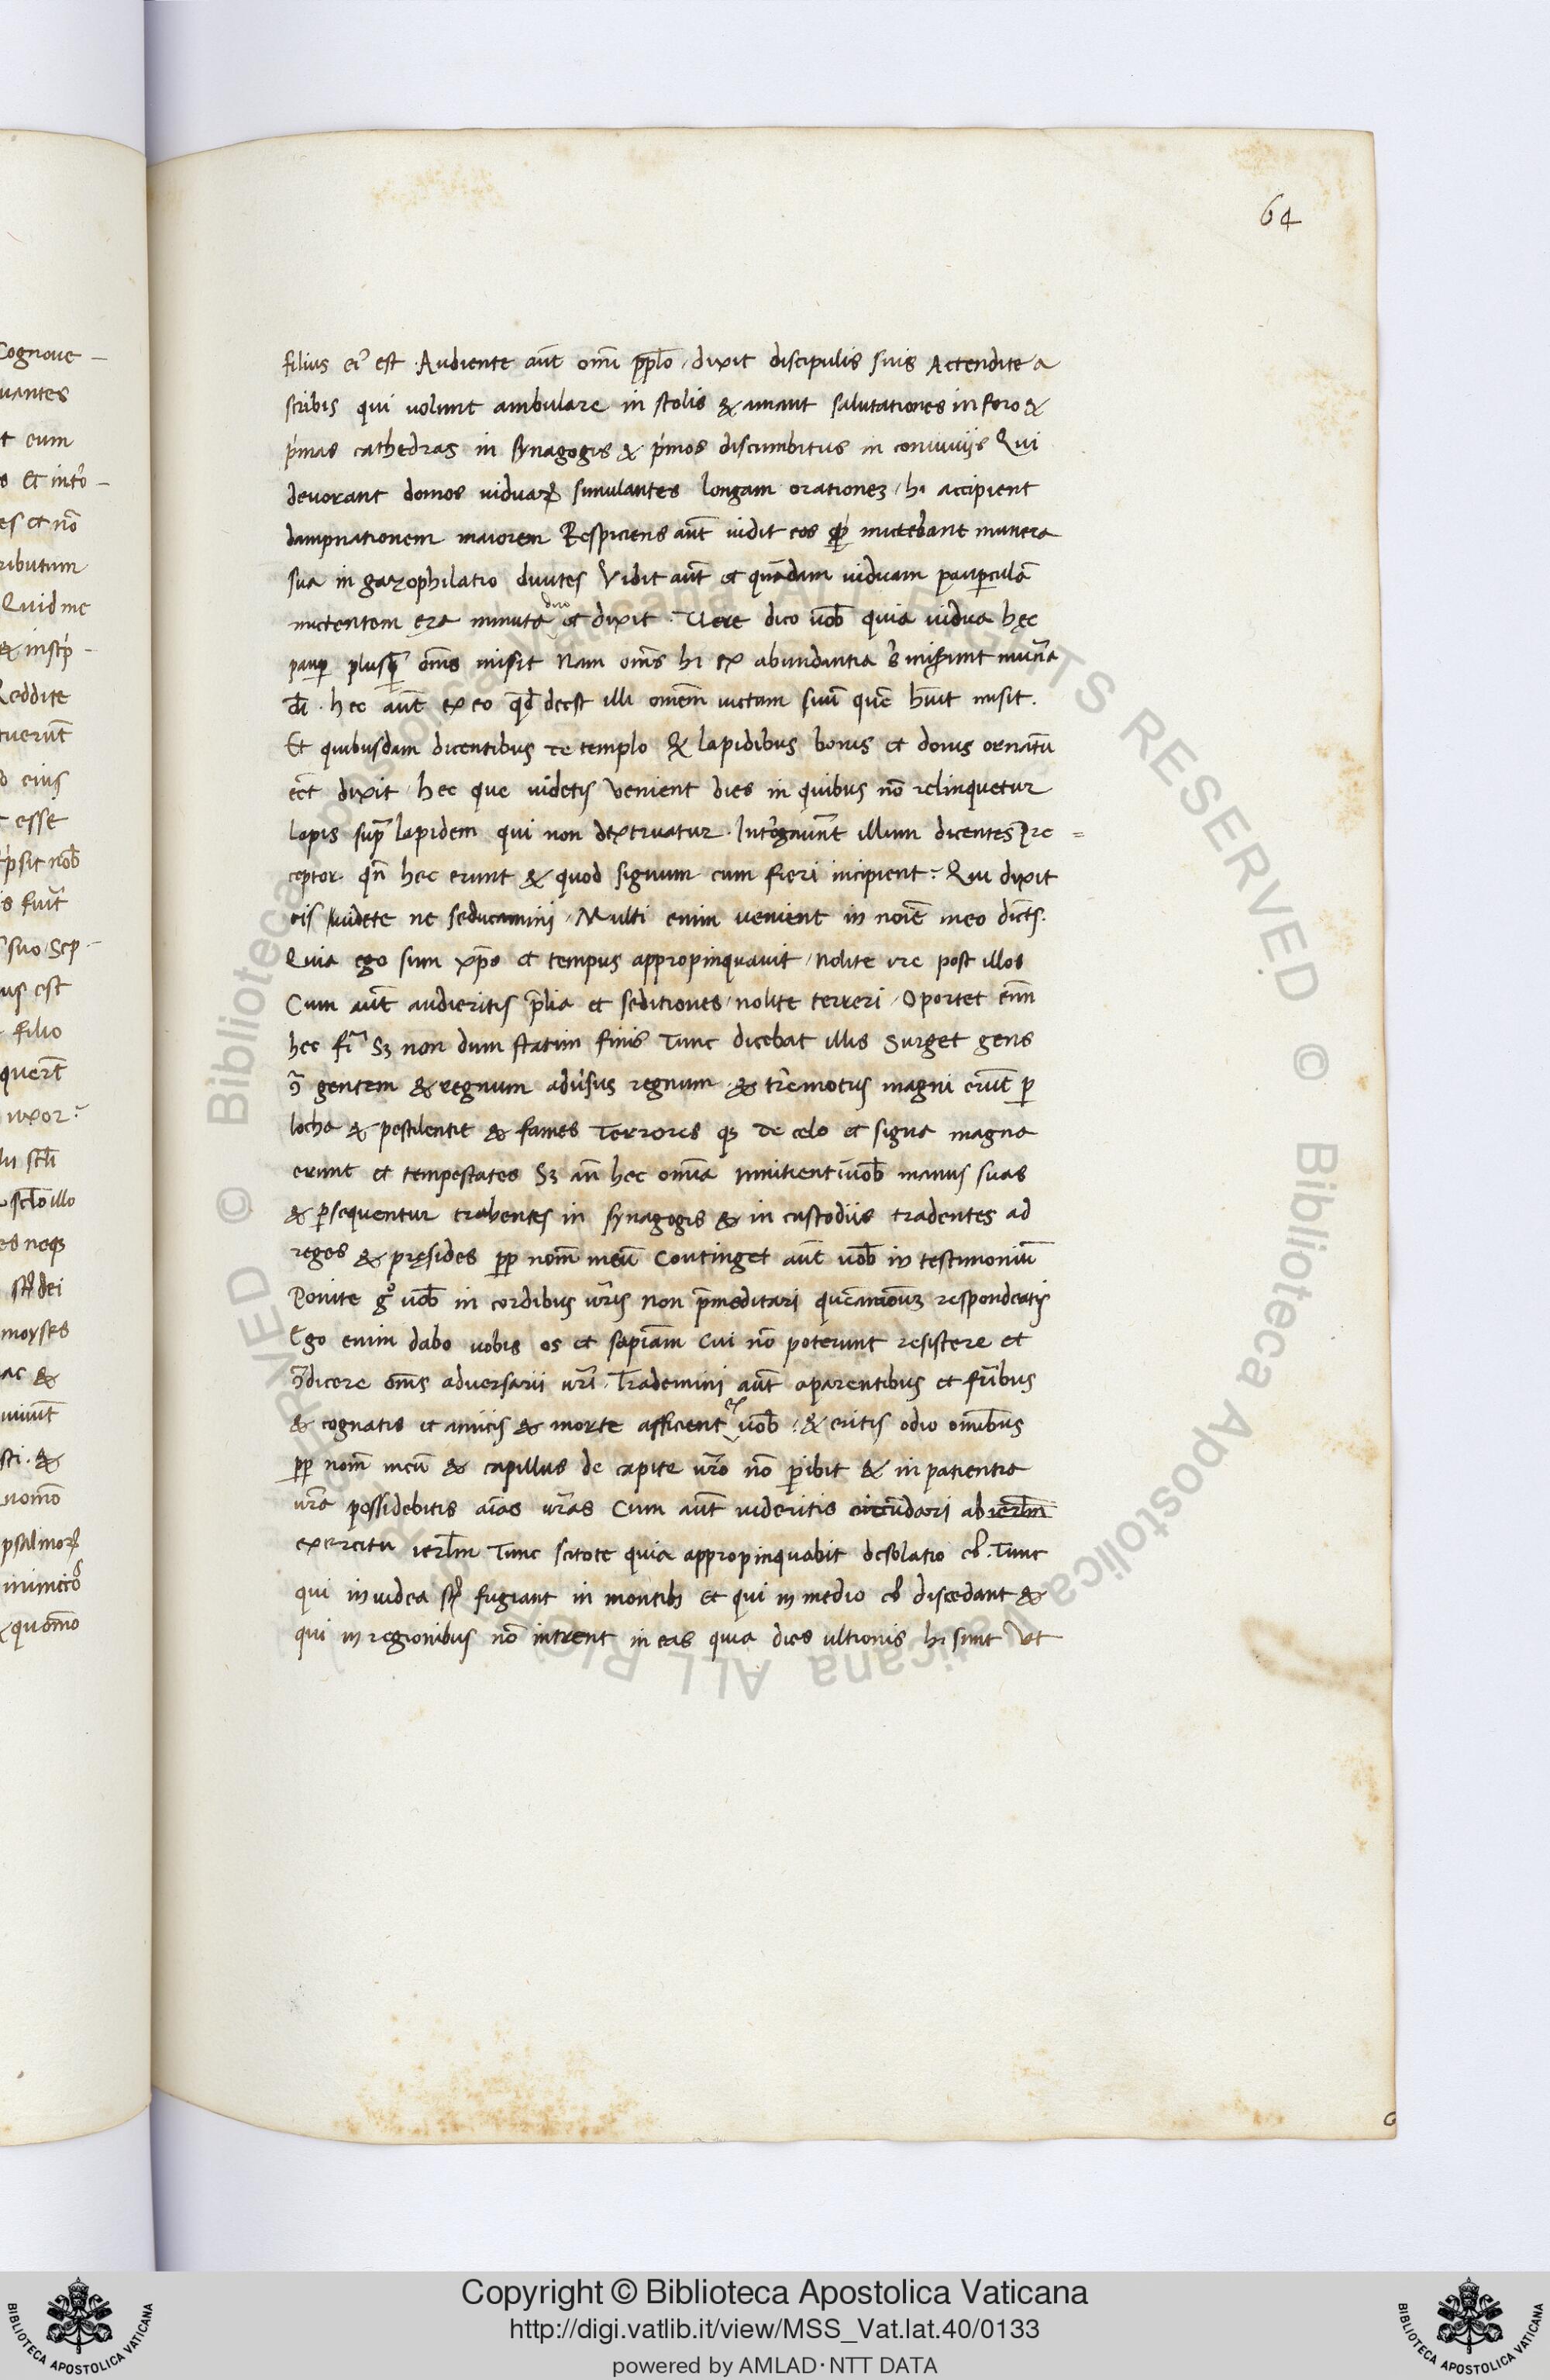 64
filius ei᾽ est · Audiente aūt om̄i pp̄lo / dixit discipulis suis Actendite a
scribis qui volunt ambulare in stolis & amant salutationes in foro &
p͛mas cathedras in synagogis & p͛mos discumbitus in conviviis Qui
devorant domos viduaꝝ simulantes longam orationeꝫ / hi accipient
dampnationem maiorem Respiciens aūt vidit eos mictebant munera
sua in gazophilatio divites Vidit aūt et quādam viduam paup̱culā
mictentem ęra minuta duo et dixit · Vere dico vob̄ quia vidua hęc
paup̱ plusq̄ᷓ om̄s misit Nam om̄s hi ex abundantia s᷒ miserunt mun̄a
dī · hec aūt ex eo qd̄ deest illi omēm victum suū quē hūit misit ·
Et quibusdam dicentibus de templo & lapidibus bonis et donis ornatū
eēt dixit / hec que videtis venient dies in quibus nō relinquetur
lapis supᷓ lapidem qui non destruatur · Int͛ogaūnt illum dicentes Pre =
ceptor · qn̄ hec erunt & quod signum cum fieri incipient ? Qui dixit
eis videte ne seducamini / Multi enim venient in noīe meo dicēts ·
Quia ego sum xp̄s et tempus appropinquavit / nolite ire post illos
Cum aūt audieritis p̄lia et seditiones / nolite terreri / Oportet enī
hec fi᷑ Sꝫ non dum statim finis Tunc dicebat illis Surget gens
ↄ̄ gentem & regnum adv͛sus regnum · & t͛remotus magni erūt p̱
locha & pestilentie & fames Terrores qꝫ de celo et signa magna
erunt et tempestates Sꝫ an̄ hec omīa inijtient vob̄ manus suas
& p̱sequentur trabentes in synagogis & in custodiis tradentes ad
reges & pręsides pp̱ nom̄ meū Continget aūt vob̄ in testimoniū
Ponite gͦ vob̄ in cordibus vr̄is non p̄meditari quēamodūꝫ respondeatis
Ego enim dabo vobis os et sapīam Cui nō poterunt resistere et
ↄ̄dicere om̄s adversarii vr̄i · Trademini aūt aparentibus et fr̄ibus
& cognatis et amicis & morte afficient ex vob̄ · & eritis odio omībus
pp̱ nom̄ meū & capillus de capite vr̄o nō p̱ibit & in patientia
vr̄a possidebitis aīas vr̄as Cum aūt videritis circūdari ab ierl̄m
exercitu ierl̄m Tunc scitote quia appropinquabit desolatio eꝰ · Tunc
qui in iudea st̄ fugiant in montibꝫ et qui in medio eꝰ discedant &
qui in regionibus nō intrent in eas quia dies ultionis hi sunt Vt
Copyright © Biblioteca Apostolica Vaticana
http://digi.vatlib.it/view/MSS_Vat.lat.40/0133
powered by AMLAD·NTT DATA
BIBLIOTECA APOSTOLICA VATICANA
BIBLIOTECA APOSTOLICA VATICANA